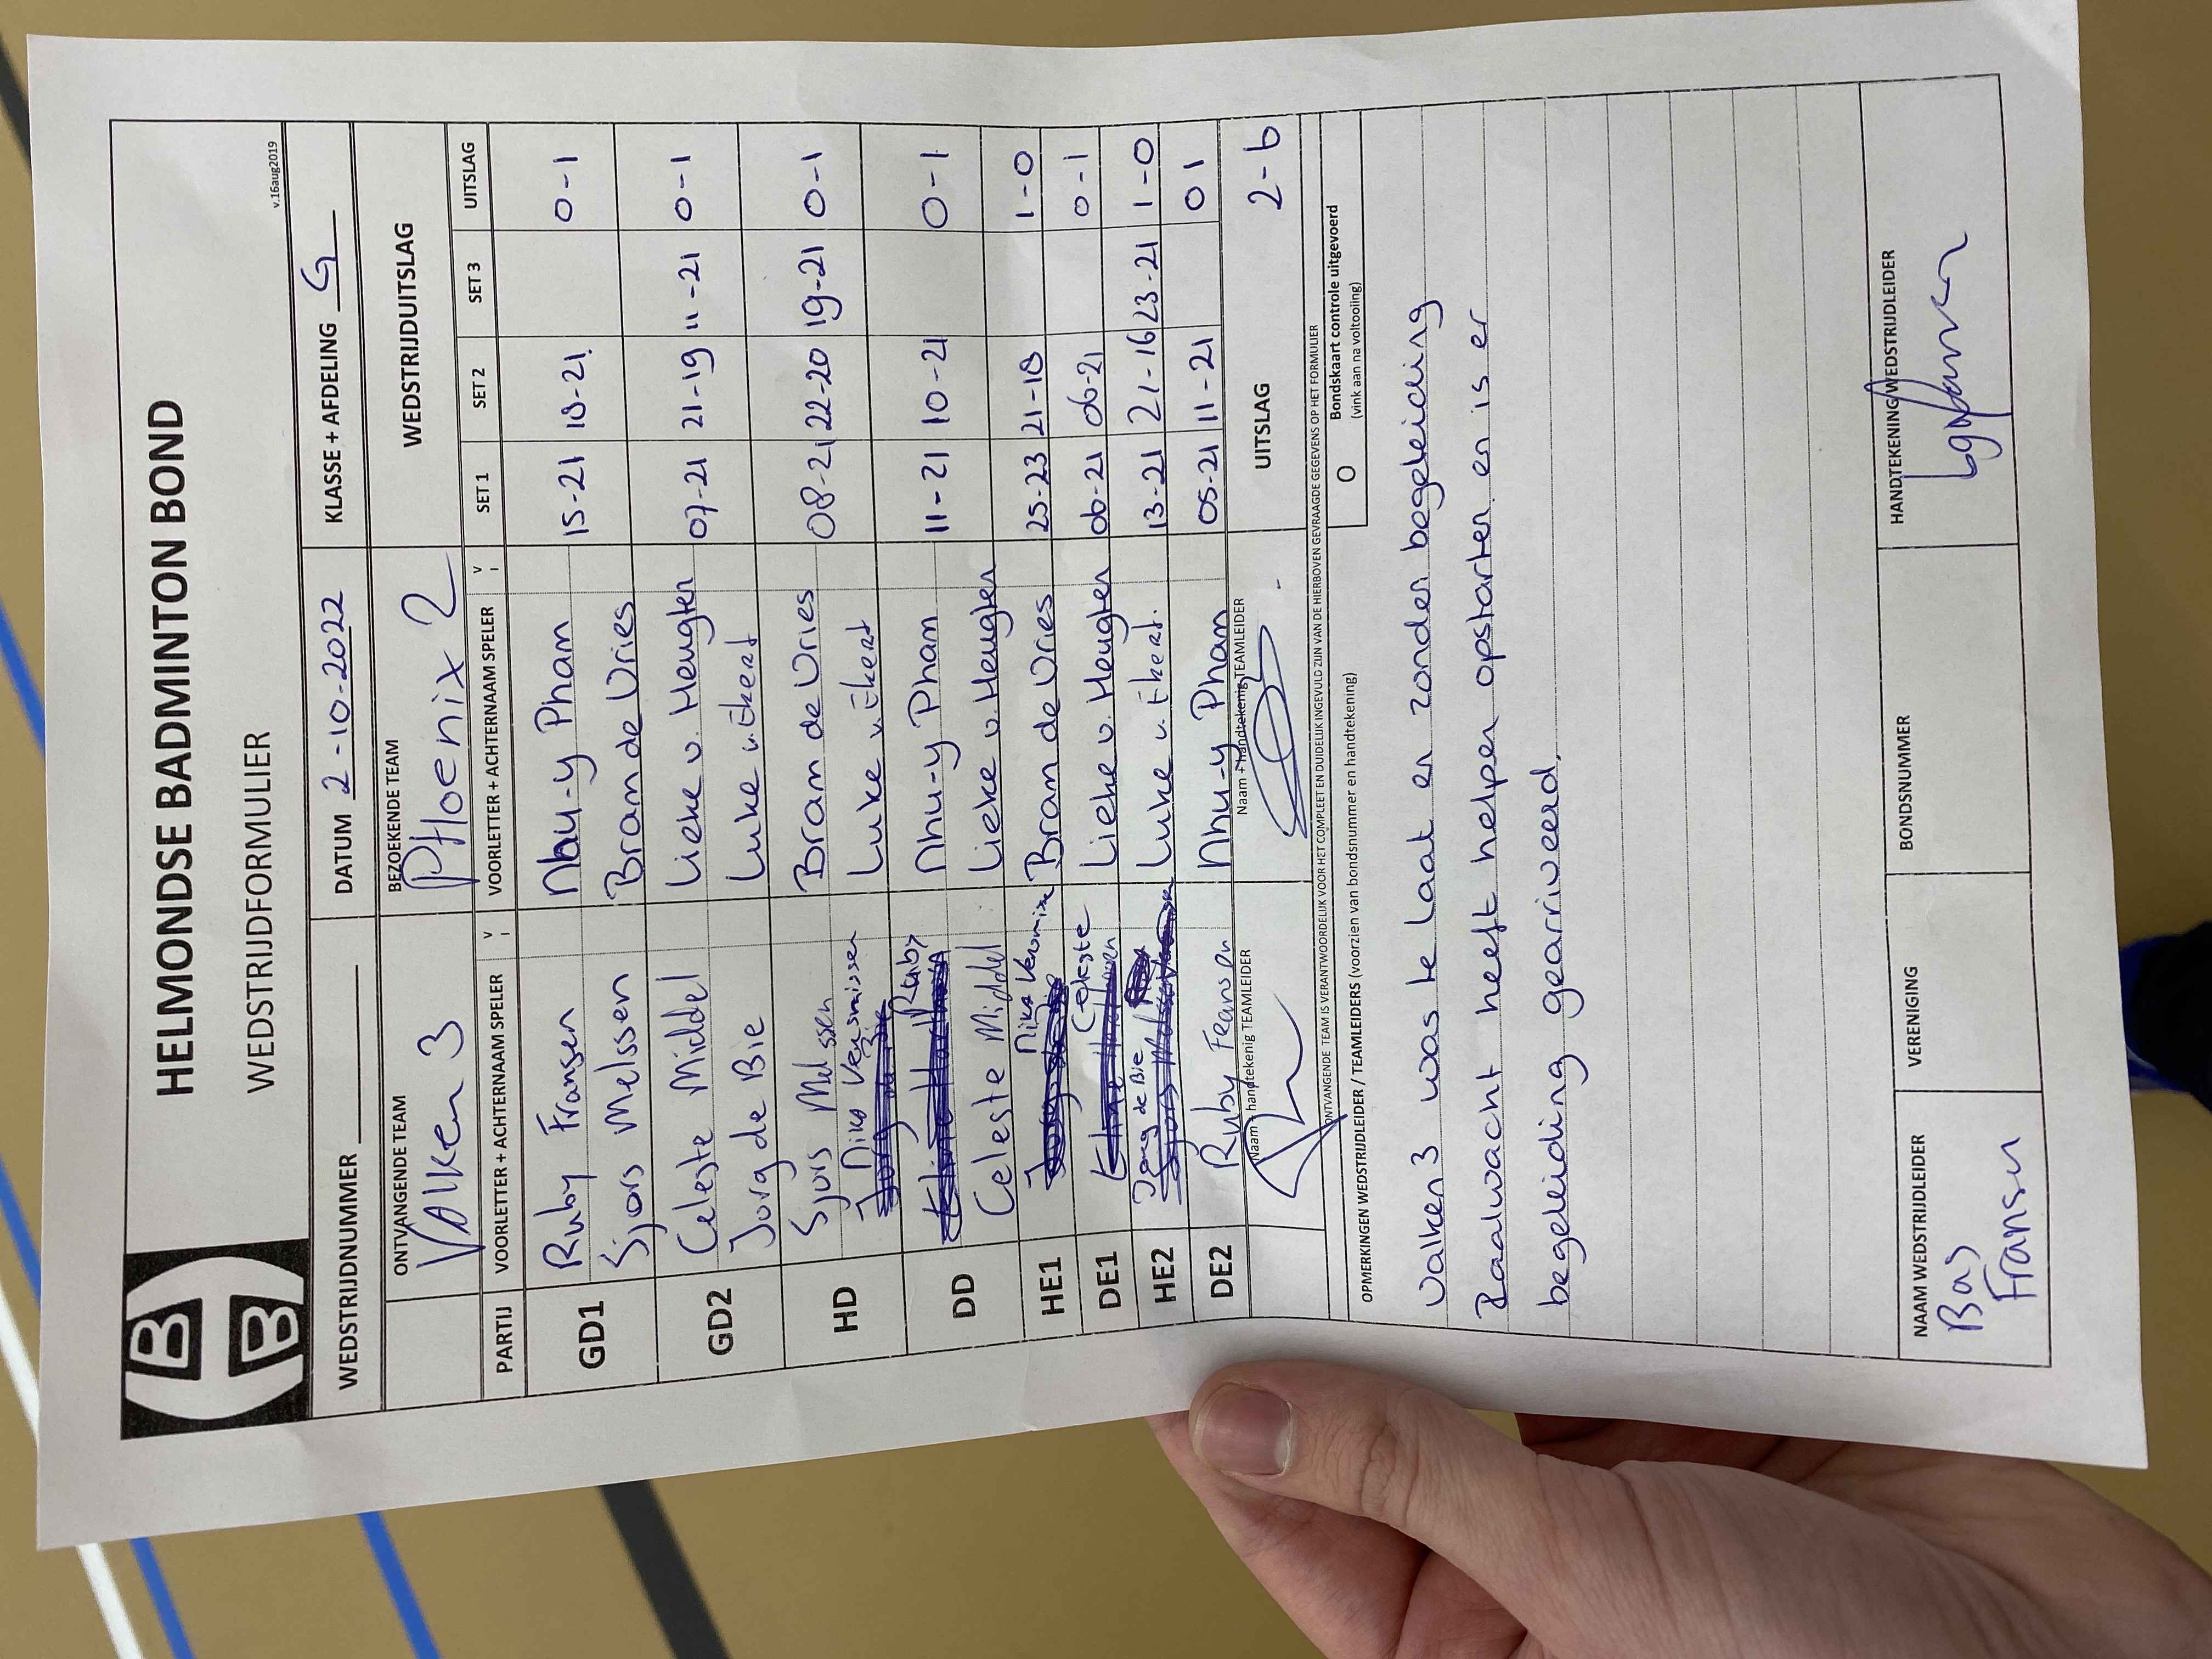 HELMONDSE BADMINTON BOND
WEDSTRIJDFORMULIER
v.16aug2019
WEDSTRIJDNUMMER DATUM 2-10-2022 KLASSE + AFDELING G
ONTVANGENDE TEAM BEZOEKENDE TEAM WEDSTRIJDUITSLAG
Valken 3 PHoenix 2
PARTIJ VOORLETTER + ACHTERNAAM SPELER V I VOORLETTER + ACHTERNAAM SPELER V I SET 1 SET 2 SET 3 UITSLAG
GD1 Ruby Fransen Nhu-y Pham 15-21 18-21 0-1
Sjors Melssen Bram de Vries
GD2 Celeste Middel Lieke v. Heugten 07-21 21-19 11-21 0-1
Jorg de Bie Luke v. Ekert
HD Sjors Melssen Bram de Vries 08-21 22-20 19-21 0-1
Luke v. Ekert
DD Ruby Nhu-y Pham 11-21 10-21 0-1
Celeste Middel Lieke v. Heugten
HE1 Bram de Vries 25-23 21-18 1-0
DE1 Celeste Lieke v. Heugten 06-21 06-21 0-1
HE2 Jorg de Bie Luke v. Ekert. 13-21 21-16 23-21 1-0
DE2 Ruby Fransen Nhu-y Pham 05-21 11-21 0 1
Naam + handtekenig TEAMLEIDER Naam + handtekenig TEAMLEIDER UITSLAG 2-6
ONTVANGENDE TEAM IS VERANTWOORDELIJK VOOR HET COMPLEET EN DUIDELIJK INGEVULD ZIJN VAN DE HIERBOVEN GEVRAAGDE GEGEVENS OP HET FORMULIER
OPMERKINGEN WEDSTRIJDLEIDER / TEAMLEIDERS (voorzien van bondsnummer en handtekening) O Bondskaart controle uitgevoerd
(vink aan na voltooiing)
Valken 3 was te laat en zonder begeleiding
Zaalwacht heeft helpen opstarten en is er
begeleiding gearriveerd.
NAAM WEDSTRIJDLEIDER VERENIGING BONDSNUMMER HANDTEKENING WEDSTRIJDLEIDER
Bas
Fransen